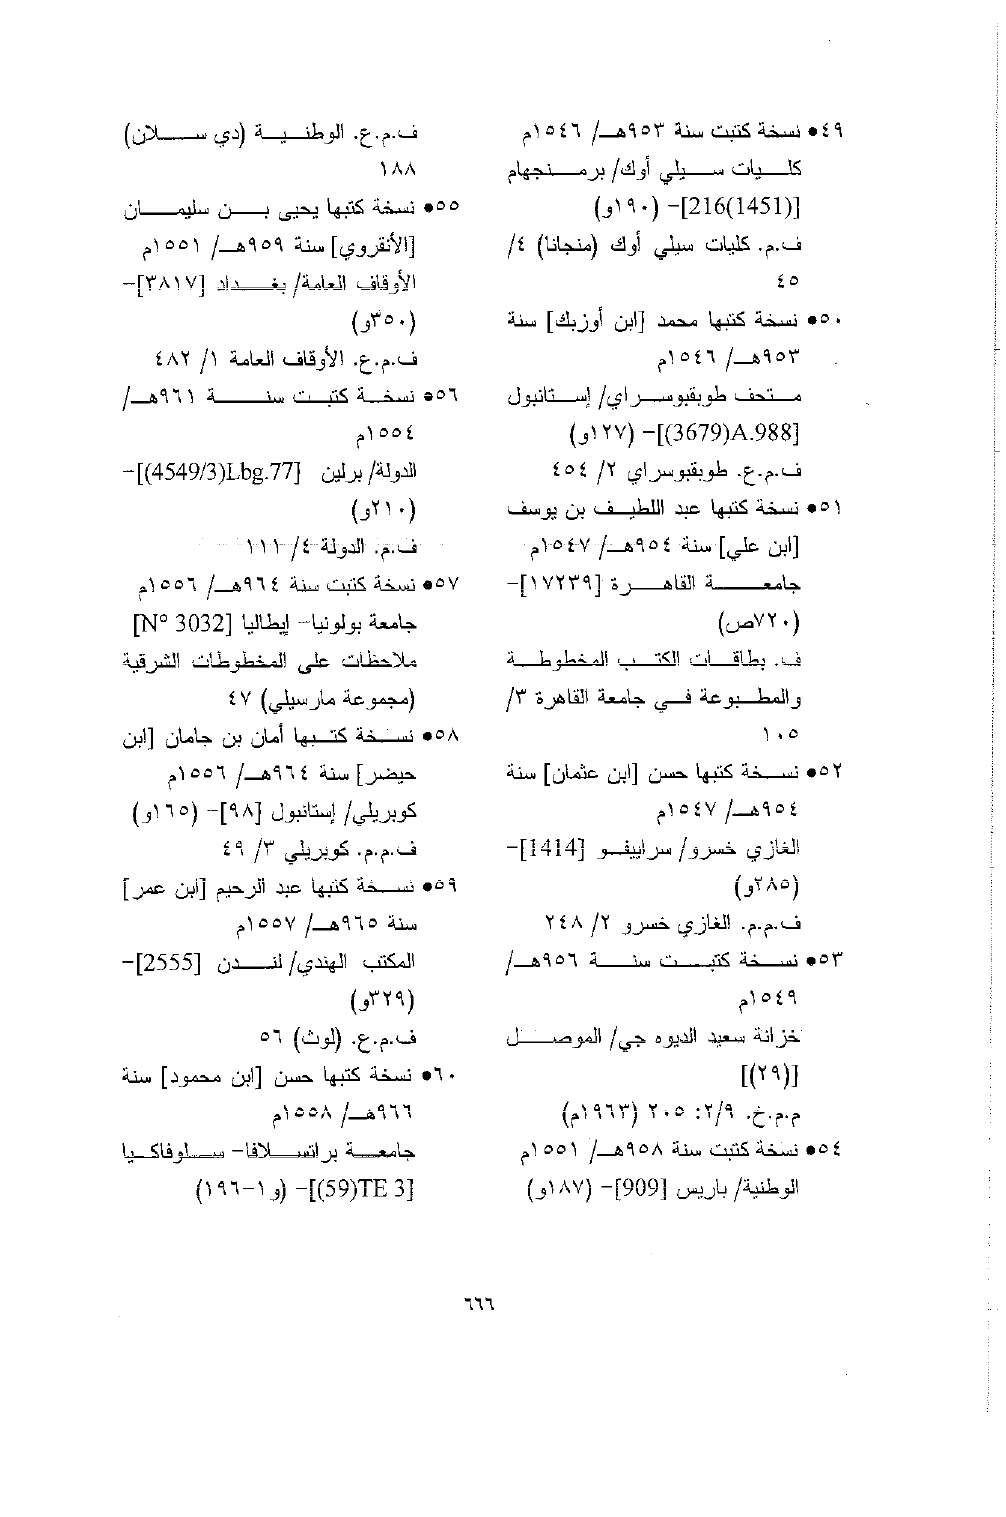 ٤٩● نسخة كتبت سنة ٩٥٣هـ/ ١٥٤٦م
كليات سيلي أوك/ برمنجهام
[216(1451)]- (١٩٠و)
ف.م. كليات سيلي أوك (منجانا) ٤/
٤٥
٥٠● نسخة كتبها محمد [ابن أوزبك] سنة
٩٥٣هـ/ ١٥٤٦م
متحف طوبقبوسراي/ إستانبول
[(3679)A.988]- (١٢٧و)
ف.م.ع. طوبقبوسراي ٢/ ٤٥٤
٥١● نسخة كتبها عبد اللطيف بن يوسف
[ابن علي] سنة ٩٥٤هـ/ ١٥٤٧م
جامعة القاهرة [١٧٢٣٩]-
(٧٢٠ص)
ف. بطاقات الكتب المخطوطة
والمطبوعة في جامعة القاهرة ٣/
١٠٥
٥٢● نسخة كتبها حسن [ابن عثمان] سنة
٩٥٤هـ/ ١٥٤٧م
الغازي خسرو/ سراييفو [1414]-
(٢٨٥و)
ف.م.م. الغازي خسرو ٢/ ٢٤٨
٥٣● نسخة كتبت سنة ٩٥٦هـ/
١٥٤٩م
خزانة سعيد الديوه جي/ الموصل
[(٢٩)]
م.م.خ. ٢/٩: ٢٠٥ (١٩٦٣م)
٥٤● نسخة كتبت سنة ٩٥٨هـ/ ١٥٥١م
الوطنية/ باريس [909]- (١٨٧و)
ف.م.ع. الوطنية (دي سلان)
١٨٨
٥٥● نسخة كتبها يحيى بن سليمان
[الأنقروي] سنة ٩٥٩هـ/ ١٥٥١م
الأوقاف العامة/ بغداد [٣٨١٧]-
(٣٥٠و)
ف.م.ع. الأوقاف العامة ١/ ٤٨٢
٥٦● نسخة كتبت سنة ٩٦١هـ/
١٥٥٤م
الدولة/ برلين [(4549/3)Lbg.77]-
(٢١٠و)
ف.م. الدولة ٤/ ١١١
٥٧● نسخة كتبت سنة ٩٦٤هـ/ ١٥٥٦م
جامعة بولونيا- إيطاليا [N° 3032]
ملاحظات على المخطوطات الشرقية
(مجموعة مارسيلي) ٤٧
٥٨● نسخة كتبها أمان بن جامان [ابن
حيضر] سنة ٩٦٤هـ/ ١٥٥٦م
كوبريلي/ إستانبول [٩٨]- (١٦٥و)
ف.م.م. كوبريلي ٣/ ٤٩
٥٩● نسخة كتبها عبد الرحيم [ابن عمر]
سنة ٩٦٥هـ/ ١٥٥٧م
المكتب الهندي/ لندن [2555]-
(٣٢٩و)
ف.م.ع. (لوث) ٥٦
٦٠● نسخة كتبها حسن [ابن محمود] سنة
٩٦٦هـ/ ١٥٥٨م
جامعة براتسلافا- سلوفاكيا
[(59)TE 3]- (و١-١٩٦)
٦٦٦